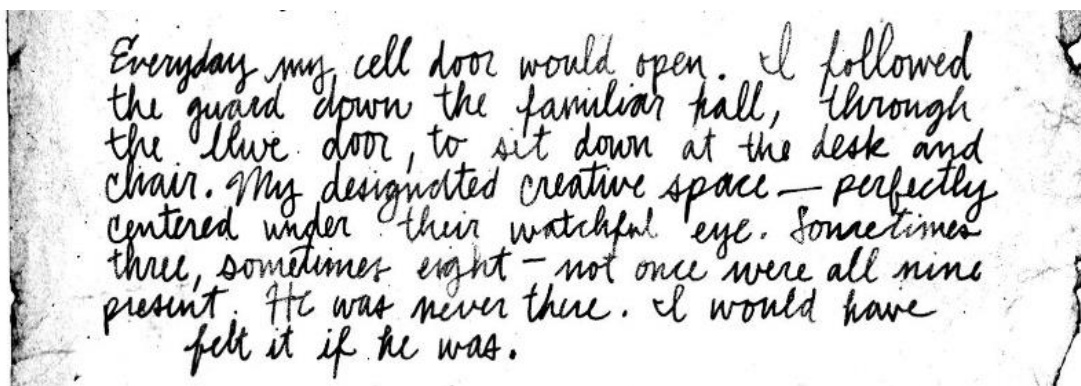 Everyday my cell door would open. I followed
the guard down the familiar hall, through
the blue door, to sit down at the desk and
chair. My designated creative space — perfectly
centered under their watchful eye. Sometimes
three, sometimes eight — not once were all nine
present. He was never there. I would have
felt it if he was.